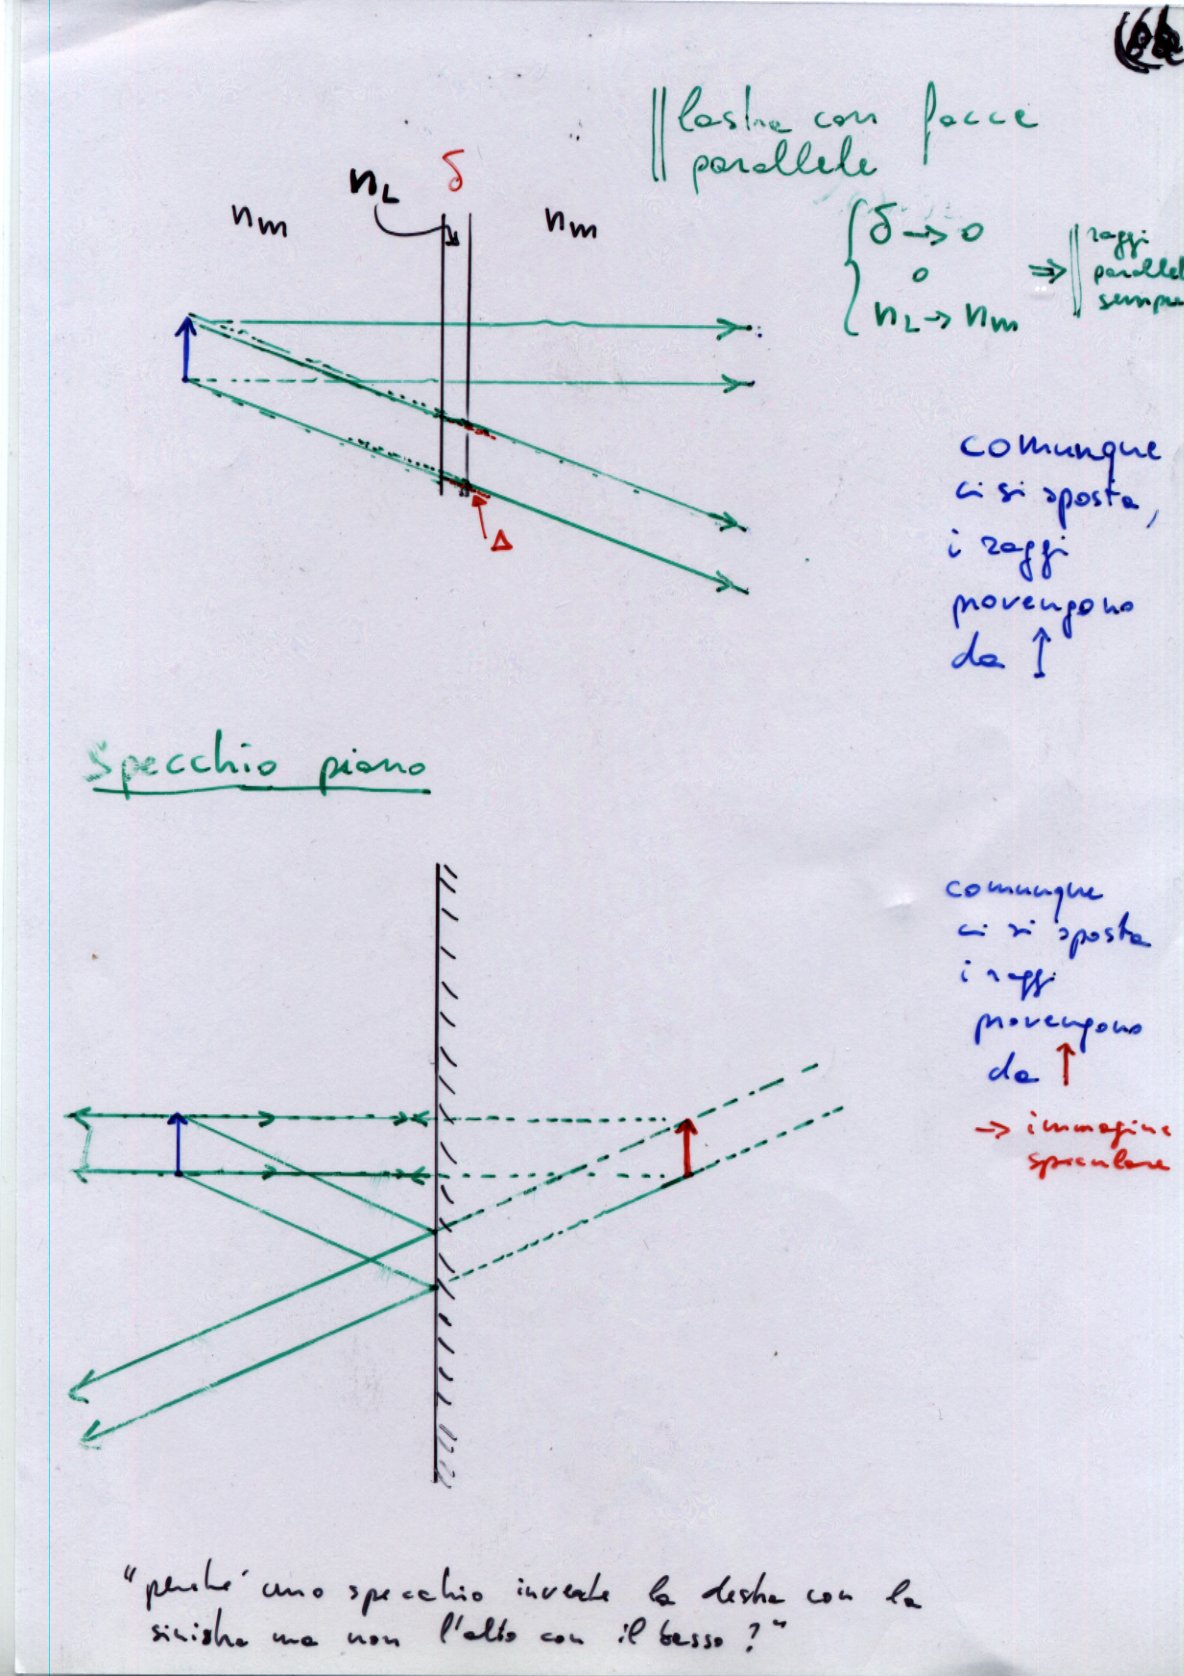 lastra con facce
parallele
n_L δ
n_m n_m
δ → 0
o
n_L → n_m
⇒ raggi
parallel
sempre
comunque
ci si sposta,
i raggi
provengono
da ↑
Δ
Specchio piano
comunque
ci si sposta
i raggi
provengono
da ↑
→ immagine
speculare
"perché uno specchio inverte la destra con la
sinistra ma non l'alto con il basso?"